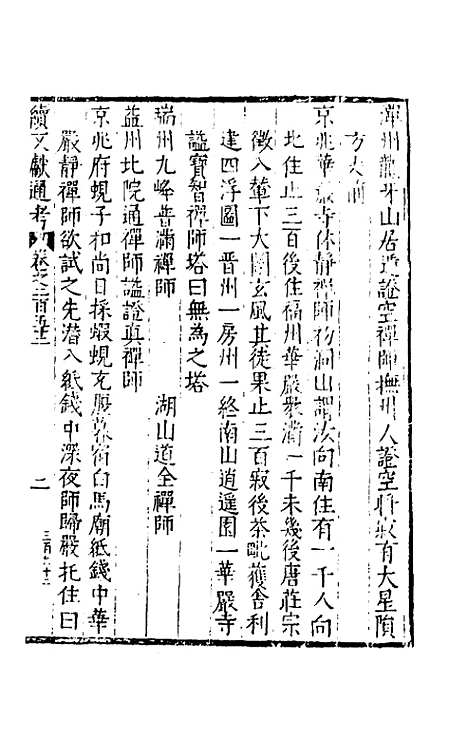 潭州龍牙山居遁證空禪師撫州人證空將寂有大星隕
方丈前
京兆華嚴寺休靜禪師初洞山謂汝向南住有一千人向
北住止三百後住福州華嚴衆滿一千未幾後唐莊宗
徵入輦下大闡玄風其徒果止三百寂後荼毗獲舍利
建四浮圖一晋州一房州一終南山逍遥園一華嚴寺
謚寶智禪師塔曰無為之塔
瑞州九峰普滿禪師　湖山道全禪師
益州北院通禪師謚證真禪師
京兆府蜆子和尚日採蝦蜆充腹暮宿白馬廟紙錢中華
嚴靜禪師欲試之先潜入紙錢中深夜師歸嚴托住曰
續文獻通考 卷之二百五十三 二